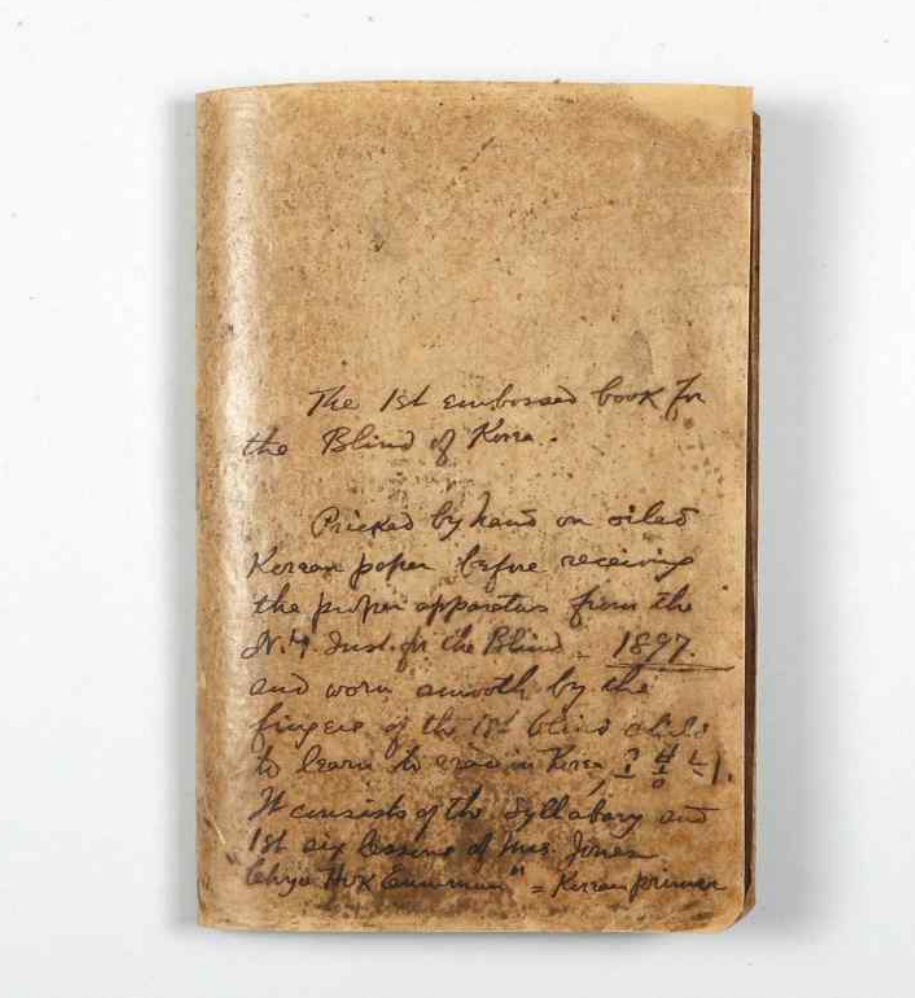 The 1st embossed book for
the Blind of Korea.
Pricked by hand on oiled
Korean paper before receiving
the proper apparatus from the
N.Y. Inst. for the Blind - 1897.
and worn smooth by the
fingers of the 1st blind child
to learn to read in Korea,
It consists of the Syllabary and
1st six lessons of Mrs. Jones
"Chyo Hok Eunmun" = Korean primer